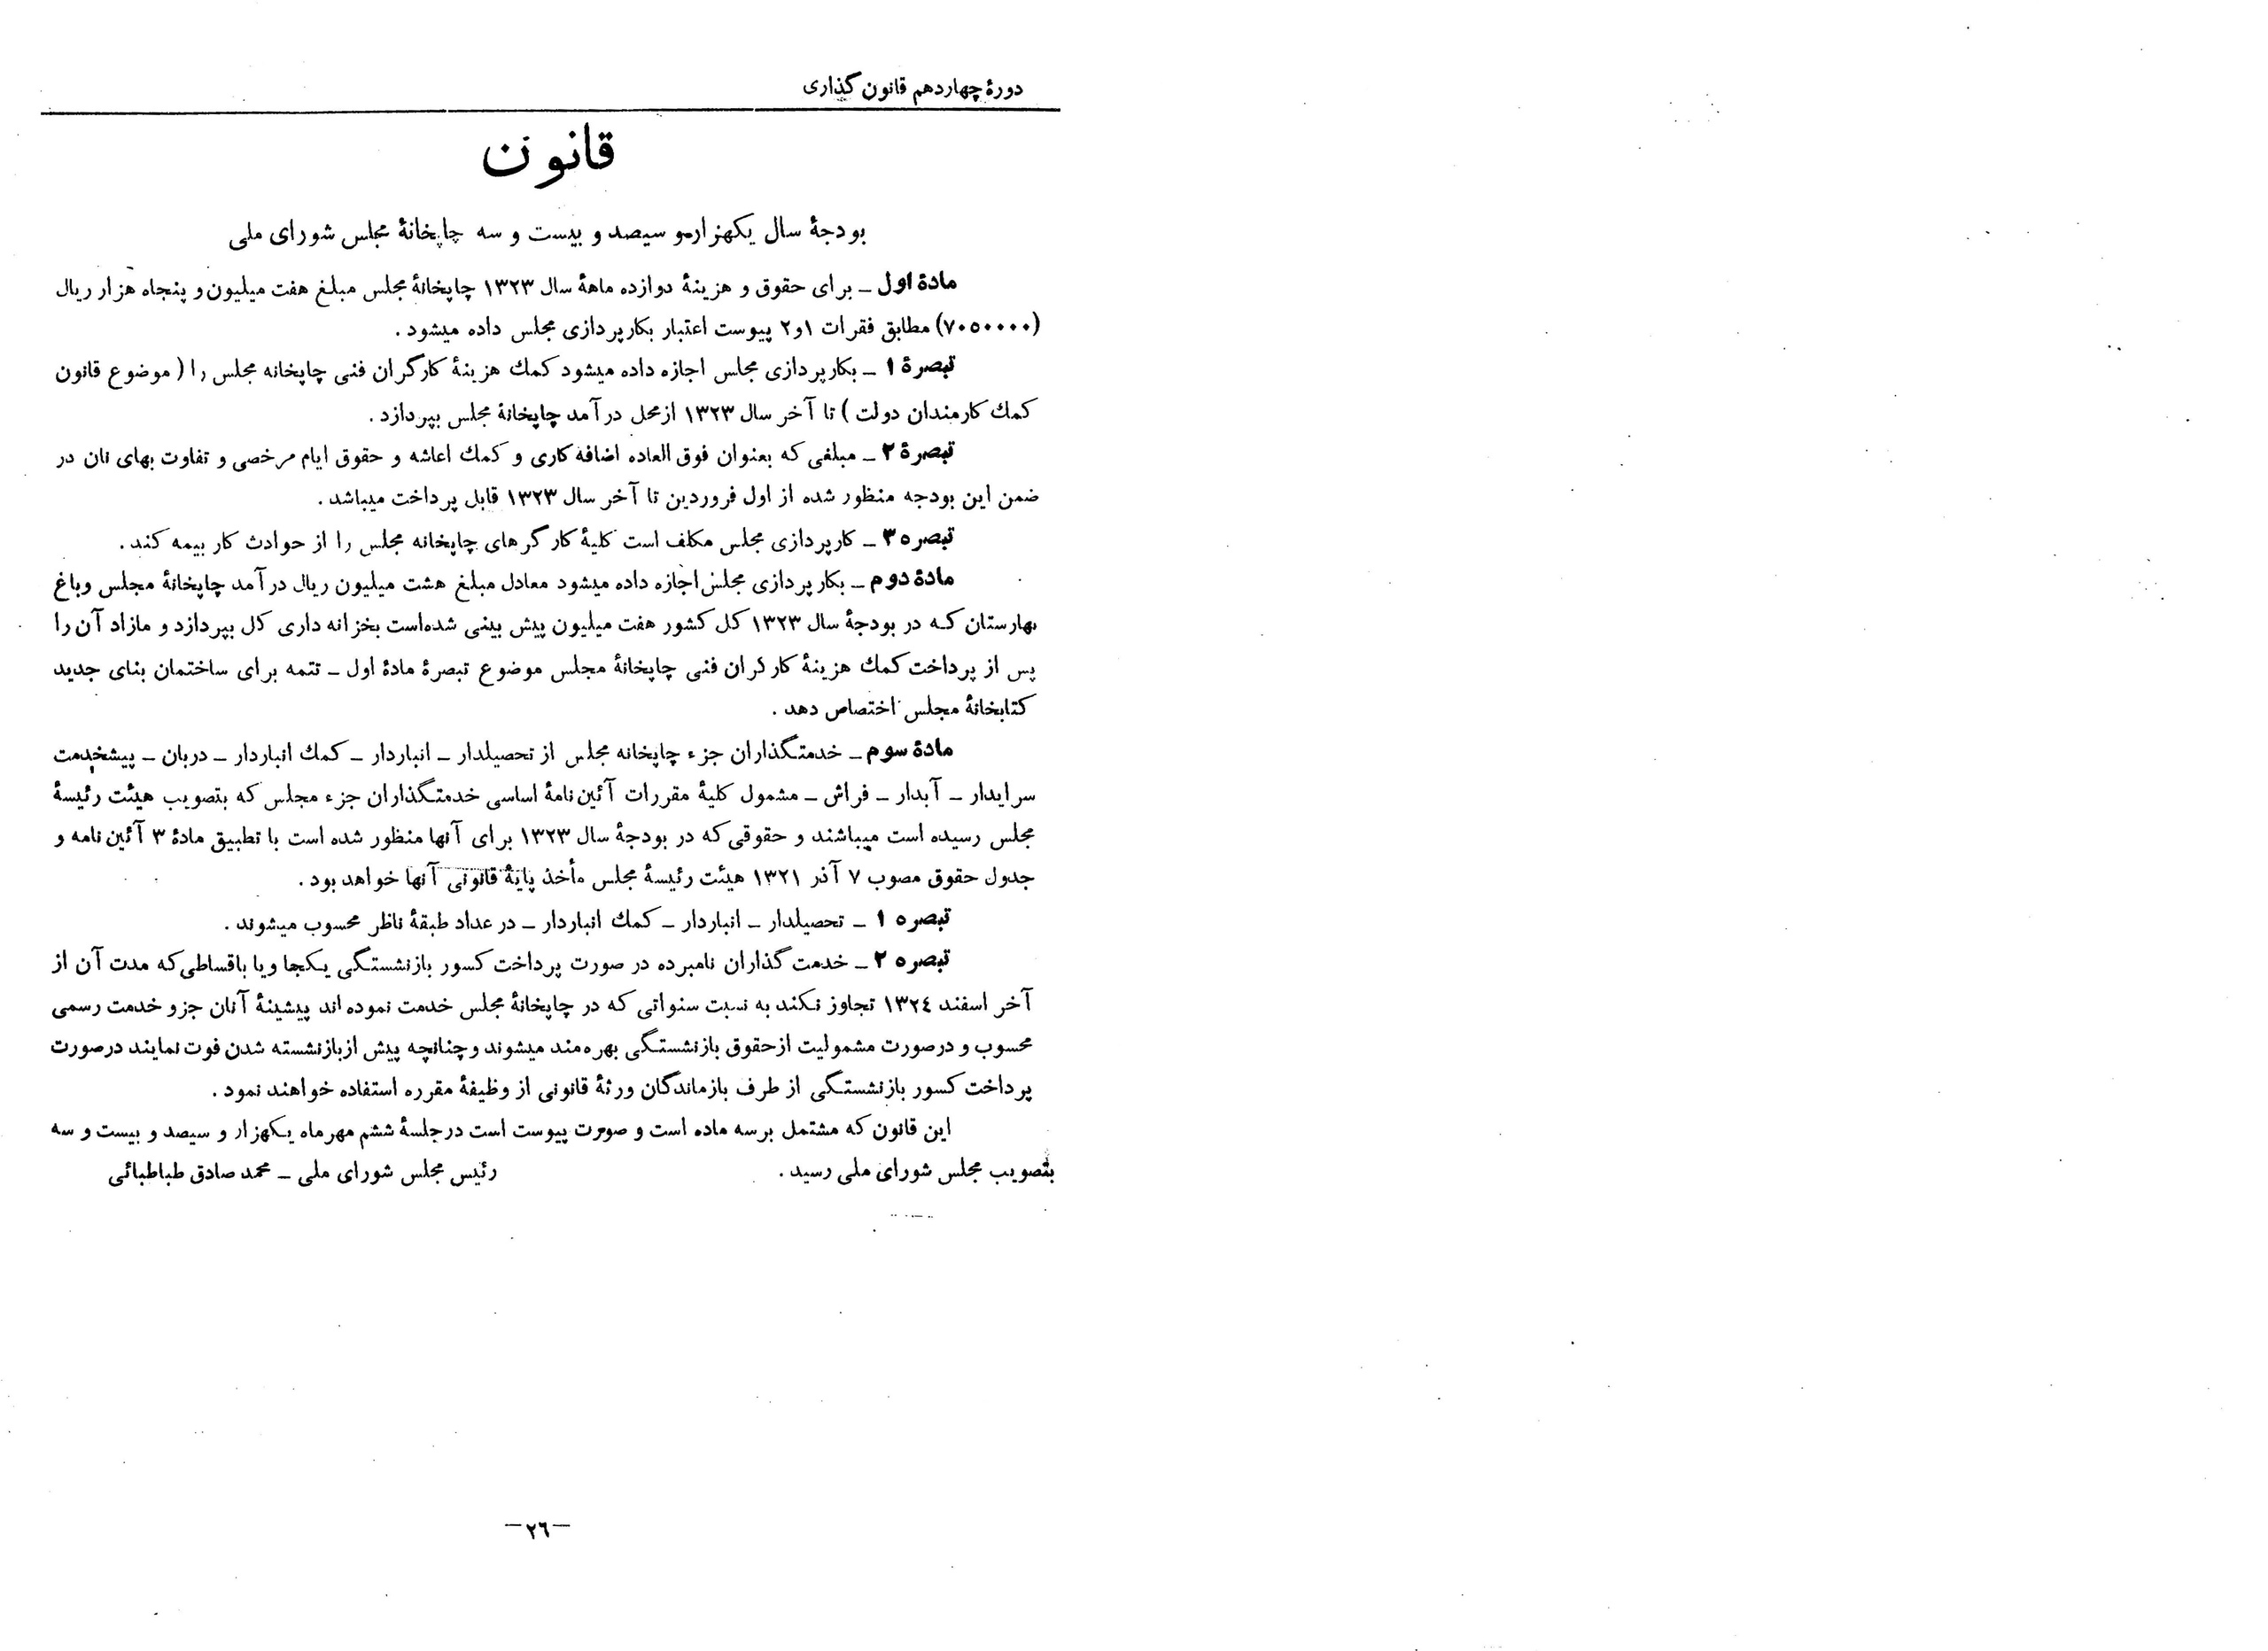 دورهٔ چهاردهم قانون گذاری
قانون
بودجهٔ سال یکهزارو سیصد و بیست و سه چاپخانهٔ مجلس شورای ملی
مادهٔ اول ـ برای حقوق و هزینهٔ دوازده ماههٔ سال ۱۳۲۳ چاپخانهٔ مجلس مبلغ هفت میلیون و پنجاه هزار ریال
(۷۰۵۰۰۰۰) مطابق فقرات ۱و۲ پیوست اعتبار بکارپردازی مجلس داده میشود .
تبصرهٔ ۱ ـ بکارپردازی مجلس اجازه داده میشود کمك هزینهٔ کارگران فنی چاپخانه مجلس را ( موضوع قانون
کمك کارمندان دولت ) تا آخر سال ۱۳۲۳ ازمحل درآمد چاپخانهٔ مجلس بپردازد .
تبصرهٔ ۲ ـ مبلغی که بعنوان فوق العاده اضافه کاری و کمك اعاشه و حقوق ایام مرخصی و تفاوت بهای نان در
ضمن این بودجه منظور شده از اول فروردین تا آخر سال ۱۳۲۳ قابل پرداخت میباشد .
تبصره ۳ ـ کارپردازی مجلس مکلف است کلیهٔ کارگرهای چاپخانه مجلس را از حوادث کار بیمه کند .
مادهٔ دوم ـ بکارپردازی مجلس اجازه داده میشود معادل مبلغ هشت میلیون ریال درآمد چاپخانهٔ مجلس وباغ
بهارستان که در بودجهٔ سال ۱۳۲۳ کل کشور هفت میلیون پیش بینی شده‌است بخزانه داری کل بپردازد و مازاد آن را
پس از پرداخت کمك هزینهٔ کارگران فنی چاپخانهٔ مجلس موضوع تبصرهٔ مادهٔ اول ـ تتمه برای ساختمان بنای جدید
کتابخانهٔ مجلس اختصاص دهد .
مادهٔ سوم ـ خدمتگذاران جزء چاپخانه مجلس از تحصیلدار ـ انباردار ـ کمك انباردار ـ دربان ـ پیشخدمت
سرایدار ـ آبدار ـ فراش ـ مشمول کلیهٔ مقررات آئین نامهٔ اساسی خدمتگذاران جزء مجلس که بتصویب هیئت رئیسهٔ
مجلس رسیده است میباشند و حقوقی که در بودجهٔ سال ۱۳۲۳ برای آنها منظور شده است با تطبیق مادهٔ ۳ آئین نامه و
جدول حقوق مصوب ۷ آذر ۱۳۲۱ هیئت رئیسهٔ مجلس مأخذ پایهٔ قانونی آنها خواهد بود .
تبصره ۱ ـ تحصیلدار ـ انباردار ـ کمك انباردار ـ در عداد طبقهٔ ناظر محسوب میشوند .
تبصره ۲ ـ خدمت گذاران نامبرده در صورت پرداخت کسور بازنشستگی یکجا ویا باقساطی که مدت آن از
آخر اسفند ۱۳۲٤ تجاوز نکند به نسبت سنواتی که در چاپخانهٔ مجلس خدمت نموده اند پیشینهٔ آنان جزو خدمت رسمی
محسوب و درصورت مشمولیت ازحقوق بازنشستگی بهره‌مند میشوند وچنانچه پیش ازبازنشسته شدن فوت نمایند درصورت
پرداخت کسور بازنشستگی از طرف بازماندگان ورثهٔ قانونی از وظیفهٔ مقرره استفاده خواهند نمود .
این قانون که مشتمل برسه ماده است و صورت پیوست است درجلسهٔ ششم مهرماه یکهزار و سیصد و بیست و سه
بتصویب مجلس شورای ملی رسید . رئیس مجلس شورای ملی ـ محمد صادق طباطبائی
–۲٦–